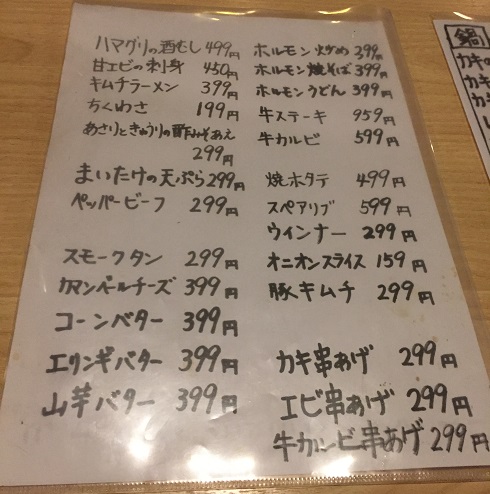 ハマグリの酒むし 499円
甘エビの刺身 450円
キムチラーメン 399円
ちくわさ 199円
あさりときゅうりの酢みそあえ
299円
まいたけの天ぷら 299円
ペッパービーフ 299円
スモークタン 299円
カマンベールチーズ 399円
コーンバター 399円
エリンギバター 399円
山芋バター 399円
ホルモン炒め 399円
ホルモン焼そば 399円
ホルモンうどん 399円
牛ステーキ 959円
牛カルビ 599円
焼ホタテ 499円
スペアリブ 599円
ウインナー 299円
オニオンスライス 159円
豚キムチ 299円
カキ串あげ 299円
エビ串あげ 299円
牛カルビ串あげ 299円
鍋
カキの
カキ